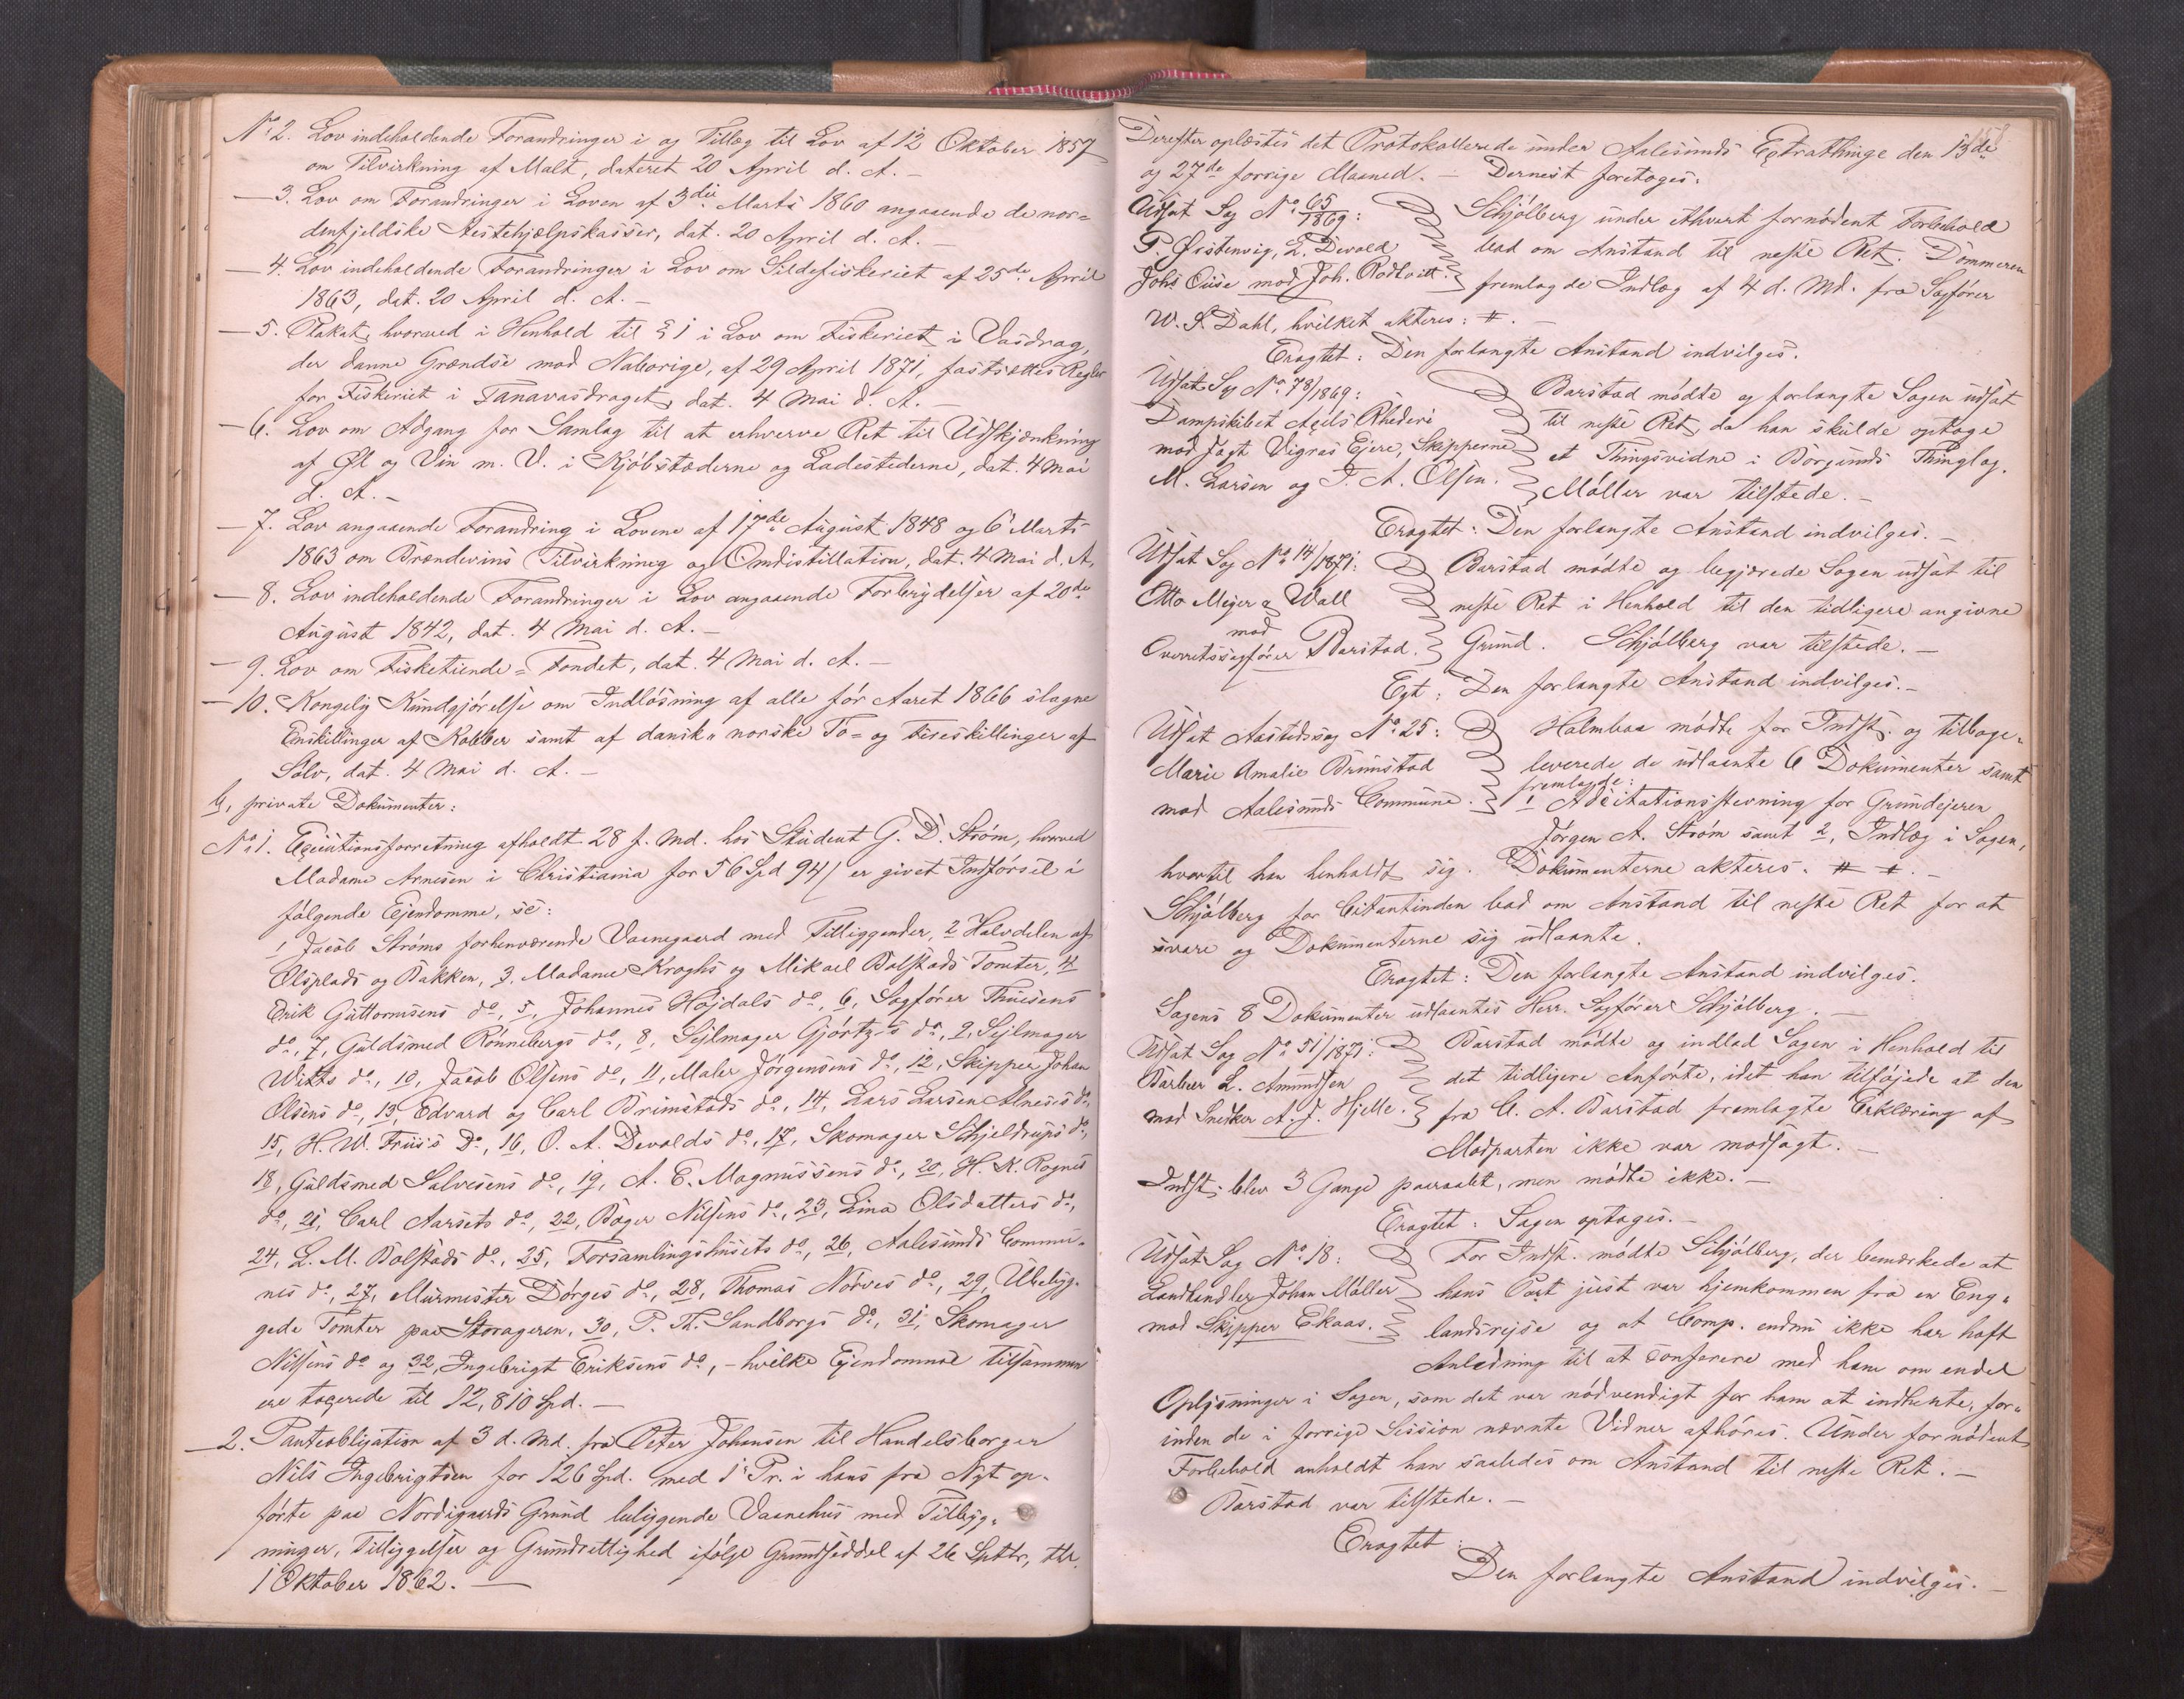 No 2. Lov indeholdende Forandringer i og Tillæg til Lov af 12 Oktober 1857
om Tilvirkning af Malt, dateret 20 April d. A. –
— 3. Lov om Forandringer i Loven af 3die Marts 1860 angaaende de nor-
denfjeldske Hestehjælpskasser, dat. 20 April d. A. –
— 4. Lov indeholdende Forandringer i Lov om Sildefiskeriet af 25de April
1863, dat. 20 April d. A. –
— 5. Plakat, hvorved i Henhold til § 1 i Lov om Fiskeriet i Vasdrag,
der danne Grændse mod Naborige, af 29 April 1871, fastsættes Regler
for Fiskeriet i Tanavasdraget, dat. 4 Mai d. A. –
— 6. Lov om Adgang for Samlag til at erhverve Ret til Udskjænkning
af Øl og Vin m. V. i Kjøbstæderne og Ladestederne, dat. 4 Mai
d. A. –
— 7. Lov angaaende Forandring i Lovene af 17de August 1848 og 6 Marts
1863 om Brændevins Tilvirkning og Omdistillation, dat. 4 Mai d. A.
— 8. Lov indeholdende Forandringer i Lov angaaende Forbrydelser af 20de
August 1842, dat. 4 Mai d. A. –
— 9. Lov om Fisketiende-Fondet, dat. 4 Mai d. A. –
— 10. Kongelig Kundgjørelse om Indløsning af alle før Aaret 1866 slagne
Enskillinger af Kobber samt af dansk-norske To- og Fireskillinger af
Sølv, dat. 4 Mai d. A. –
b, private Dokumenter:
No 1. Executionsforretning afholdt 28 f. Md. hos Student G. D. Strøm, hvorved
Madame Arnesen i Christiania for 56 Spd 94 / er givet Indførsel i
følgende Ejendomme, se:
1 Jacob Strøms forhenværende Vaanegaard med Tilliggender, 2 Halvdelen af
Olsplads og Bakken, 3, Madame Kroghs og Mikael Balstads Tomter, 4
Erik Guttormsens do, 5, Johannes Højdals do, 6, Sagfører Thuesens
do, 7, Guldsmed Rønnebergs do, 8, Sejlmager Gjørtz's do, 9, Sejlmager
Witts do, 10, Jacob Olsens do, 11, Maler Jørgensens do, 12, Skipper Johan
Olsens do, 13, Edvard og Carl Brimstads do, 14, Lars Larsen Alnæses do,
15, H. W. Friis's Do, 16, O. A. Devolds do, 17, Skomager Schjeldrups do,
18, Guldsmed Salvesens do, 19, A. E. Magnussens do, 20, H. K. Rognes
do, 21, Carl Aarsets do, 22, Bager Nilsens do, 23, Lina Olsdatters do,
24, L. M. Balstads do, 25, Forsamlingshusets do, 26, Aalesunds Commu-
nes do, 27, Murmester Dørges do, 28, Thomas Nørves do, 29, Ubebyg-
gede Tomter paa Storageren, 30, P. Th. Sandborgs do, 31, Skomager
Nilsens do og 32, Ingebrigt Eriksens do, – hvilke Ejendomme tilsammen
ere taxerede til 12,810 Spd. –
— 2. Panteobligation af 3 d. Md. fra Peter Johansen til Handelsborger
Nils Ingebrigtsen for 126 Spd. med 1 Pr. i hans fra Nyt op-
førte paa Nordigaards Grund beliggende Vaanehus med Tilbyg-
ninger, Tilliggelser og Grundrettighed ifølge Grundseddel af 26 Septbr, thl.
1 Oktober 1862. —
Derefter oplæstes det Protokollerede under Aalesunds Extrathinge den 13de
og 27de forrige Maaned. – Dernest foretoges:
Udsat Sag No 65/1869:
P. Østenvig, L. Devold
Johs Ouse mod Joh. Rødtvitt.
Schjølberg under ethvert fornødent Forbehold
bad om Anstand til neste Ret. Dommeren
fremlagde Indlæg af 4 d. Md. fra Sagfører
W. S. Dahl, hvilket akteres: #. –
Eragtet: Den forlangte Anstand indvilges.
Udsat Sag No 78/1869:
Dampskibet Ægils Rhederi
mod Jagt Vigras Ejere, Skipperne
M. Larsen og T. A. Olsen.
Barstad mødte og forlangte Sagen udsat
til neste Ret, da han skulde optage
et Thingsvidne i Borgunds Thinglag.
Møller var tilstede. –
Eragtet: Den forlangte Anstand indvilges. –
Udsat Sag No 14/1871:
Otto Mejer & Wall
mod
Overretssagfører Barstad.
Barstad mødte og begjærede Sagen udsat til
neste Ret i Henhold til den tidligere angivne
Grund. Schjølberg var tilstede. –
Egt: Den forlangte Anstand indvilges. –
Udsat Aastedssag No 25:
Marie Amalie Brunstad
mod Aalesunds Commune.
Holmboe mødte for Indst. og tilbage-
leverede de udlaante 6 Dokumenter samt
fremlagde:
1 Adcitationsstevning for Grundejeren
Jørgen A. Strøm samt 2, Indlæg i Sagen,
hvortil han henholdt sig. Dokumenterne akteres. # #. –
Schjølberg for Citantinden bad om Anstand til neste Ret for at
svare og Dokumenterne sig udlaante.
Eragtet: Den forlangte Anstand indvilges.
Sagens 8 Dokumenter udlaantes Herr. Sagfører Schjølberg. –
Udsat Sag No 51/1871:
Barber L. Amundsen
mod Snedker A. J. Hjelle.
Barstad mødte og indlod Sagen i Henhold til
det tidligere Anførte, idet han tilføjede at den
fra C. A. Barstad fremlagte Erklæring af
Modparten ikke var modsagt. –
Indst. blev 3 Gange paaraabt, men mødte ikke. –
Eragtet: Sagen optages. –
Udsat Sag No 18:
Landhandler Johan Møller
mod Skipper Ekaas.
For Indst. mødte Schjølberg, der bemærkede at
hans Part just var hjemkommen fra en Eng-
landsrejse og at Comp. endnu ikke har haft
Anledning til at conferere med ham om endel
Oplysninger i Sagen, som det var nødvendigt for ham at indhente, for-
inden de i forrige Session nævnte Vidner afhøres. Under fornødent
Forbehold anholdt han saaledes om Anstand til neste Ret. –
Barstad var tilstede. –
Eragtet:
Den forlangte Anstand indvilges. –